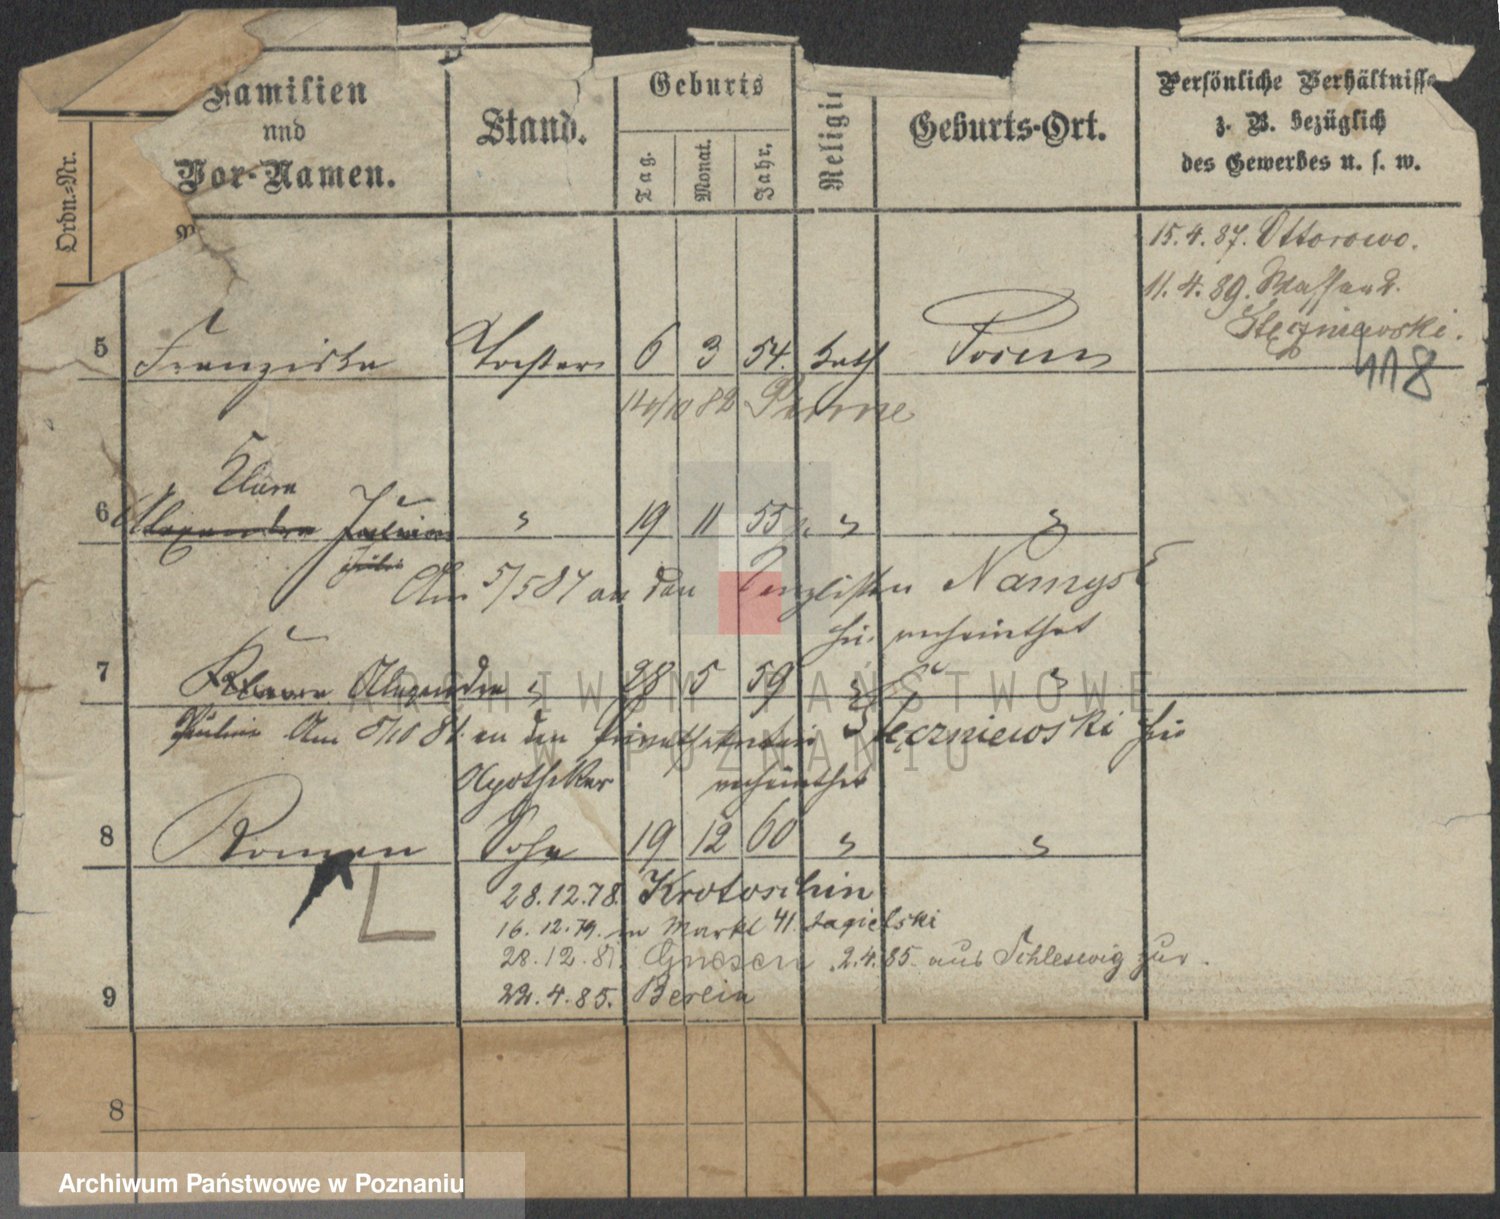 Ordn.-Nr.
Familien
und
Vor-Namen.
Stand.
Geburts
Tag.
Monat.
Jahr.
Religi
Geburts-Ort.
Persönliche Verhältnisse
z. B. bezüglich
des Gewerbes u. s. w.
15. 4. 87. Ottorowo.
11. 4. 89.
Stęczniewski.
118
5 Franziska Tochter 6 3 54. kath Posen
14/10 82
Clara
6 Alexandra 19 11 55 " "
Am 5/5 87 an den Canzlisten Namysł
hier verheirathet
7 Alexandra " 28 5 59 " "
Am 8/10 84 an den Stęczniewski hier
Apotheker verheirathet
8 Roman Sohn 19 12 60 " "
28.12.78. Krotoschin
16.12.79. in Markt 41. Jagielski
28.12.81. Gnesen 2.4.85. aus Schleswig zur.
22.4.85. Berlin
9
8
ARCHIWUM PAŃSTWOWE
W POZNANIU
Archiwum Państwowe w Poznaniu